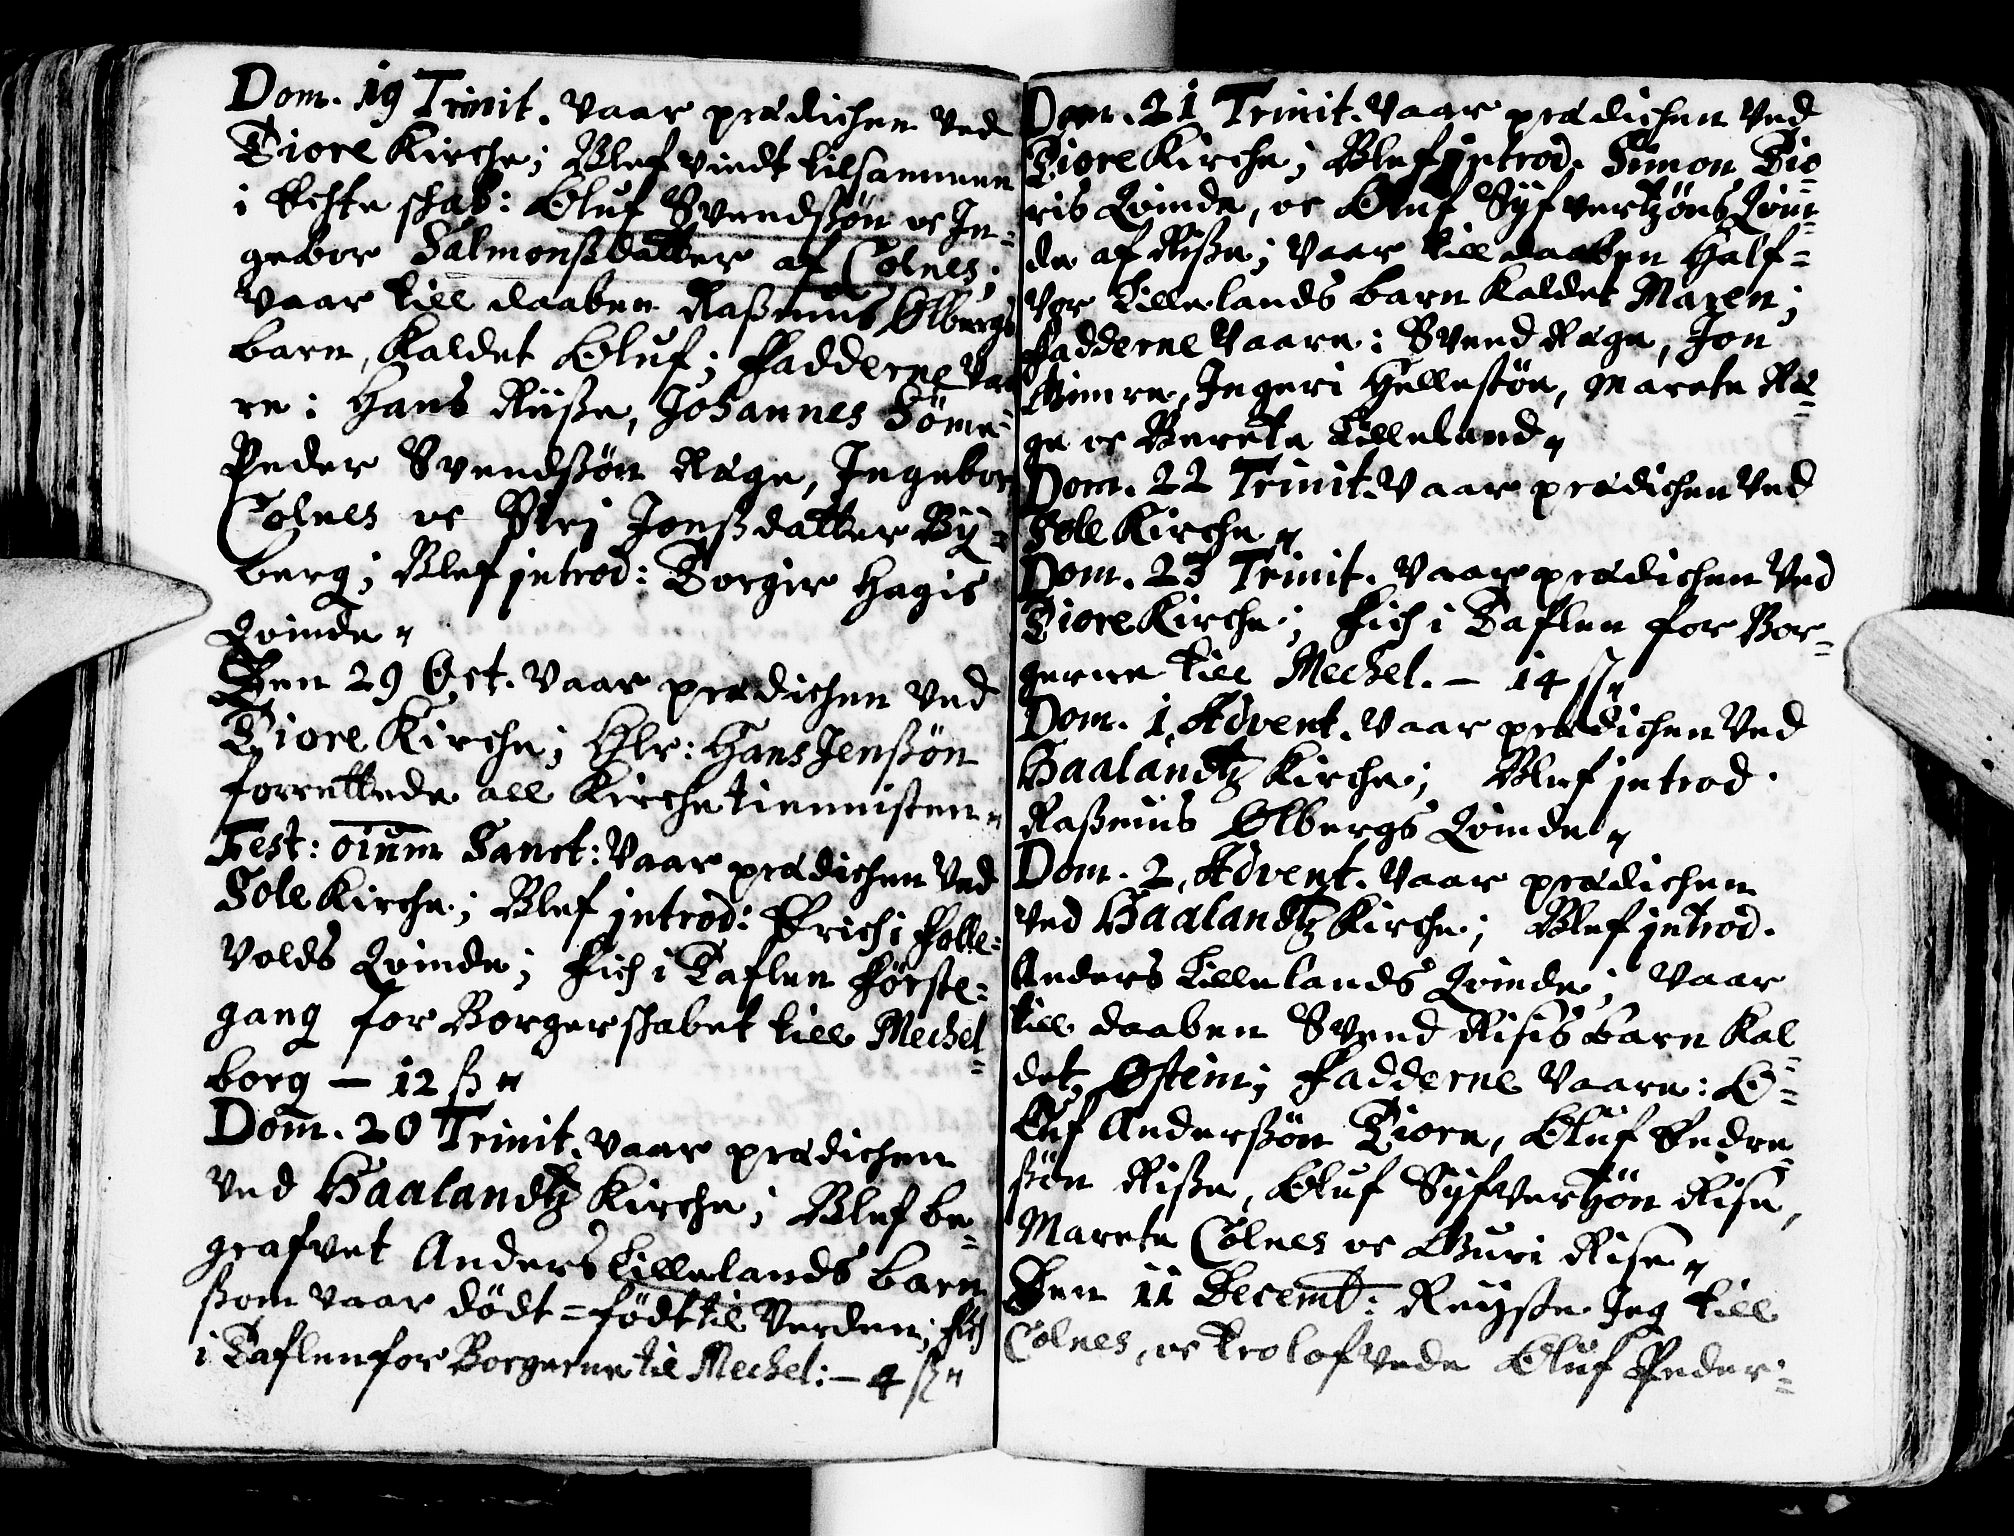 Dom. 19 Trinit. vaar prædichen ved
Tiore Kirche; Blef viedt tilsammen
i Echte schab: Oluf Svendßøn oc In-
gebor Salmonßdatter af Colnes;
Vaar till daaben Raßmus Ølbergs
barn, kaldet Oluf; Fadderne vaa
re: Hans Riiße, Johannes Søme
Peder Svendßøn Rege, Ingebor
Colnes oc Siri Jonßdatter By-
berg; Blef introd: Torgir Hagis
Qvinde"
Den 29 Oct. vaar prædichen ved
Tiore Kirche; Hlr: Hans Jenßøn
forrettede all Kirche tienisten"
Fest: oium Sanct: Vaar prædichen ved
Sole Kirche; Blef introd: Erich i Solle-
Volds Qvinde; Fich i Taflen første-
gang for Borgerschabet till Mechel-
borg — 12 ß"
Dom. 20 Trinit. vaar prædichen
ved Haalandtz Kirche; Blef be-
grafvet Anders Lillelands barn
ßom vaar dødt-født til Verden; fich
i Taflen for Borgerne til Mechel: — 4 ß"
Dom. 21 Trinit. Vaar prædichen ved
Tiore Kirche; Blef introd. Simon Tio-
ris Qvinde, oc Oluf Syfvertzøns Qvin-
de af Riße; Vaar till daaben Half-
vor Lillelands barn kaldet Maren;
Fadderne vaare: Svend Rege, Jon
Gimre, Ingeri Hellestøe, Marete Re-
ge oc Berete Lilleland"
Dom. 22 Trinit. Vaar prædichen ved
Sole Kirche"
Dom. 23 Trinit. Vaar prædichen ved
Tiore Kirche; Fich i Taflen for Bor-
gerne till Mechel. — 14 ß"
Dom. 1 Advent. Vaar prædichen ved
Haalandtz Kirche; Blef introd.
Raßmus Ølbergs Qvinde"
Dom. 2 Advent. Vaar prædichen
ved Haalandtz Kirche; Blef introd.
Anders Lillelands Qvinde; Vaar
till daaben Svend Risis barn kal-
det Østen; Fadderne vaare: O-
luf Anderßøn Tiore, Oluf Endre-
ßøn Riße, Oluf Syfvertzøn Rise,
Marete Colnes oc Guri Rise"
Den 11 Decemb: Reyste Jeg till
Colnes, oc trolofvede Oluf Peder-